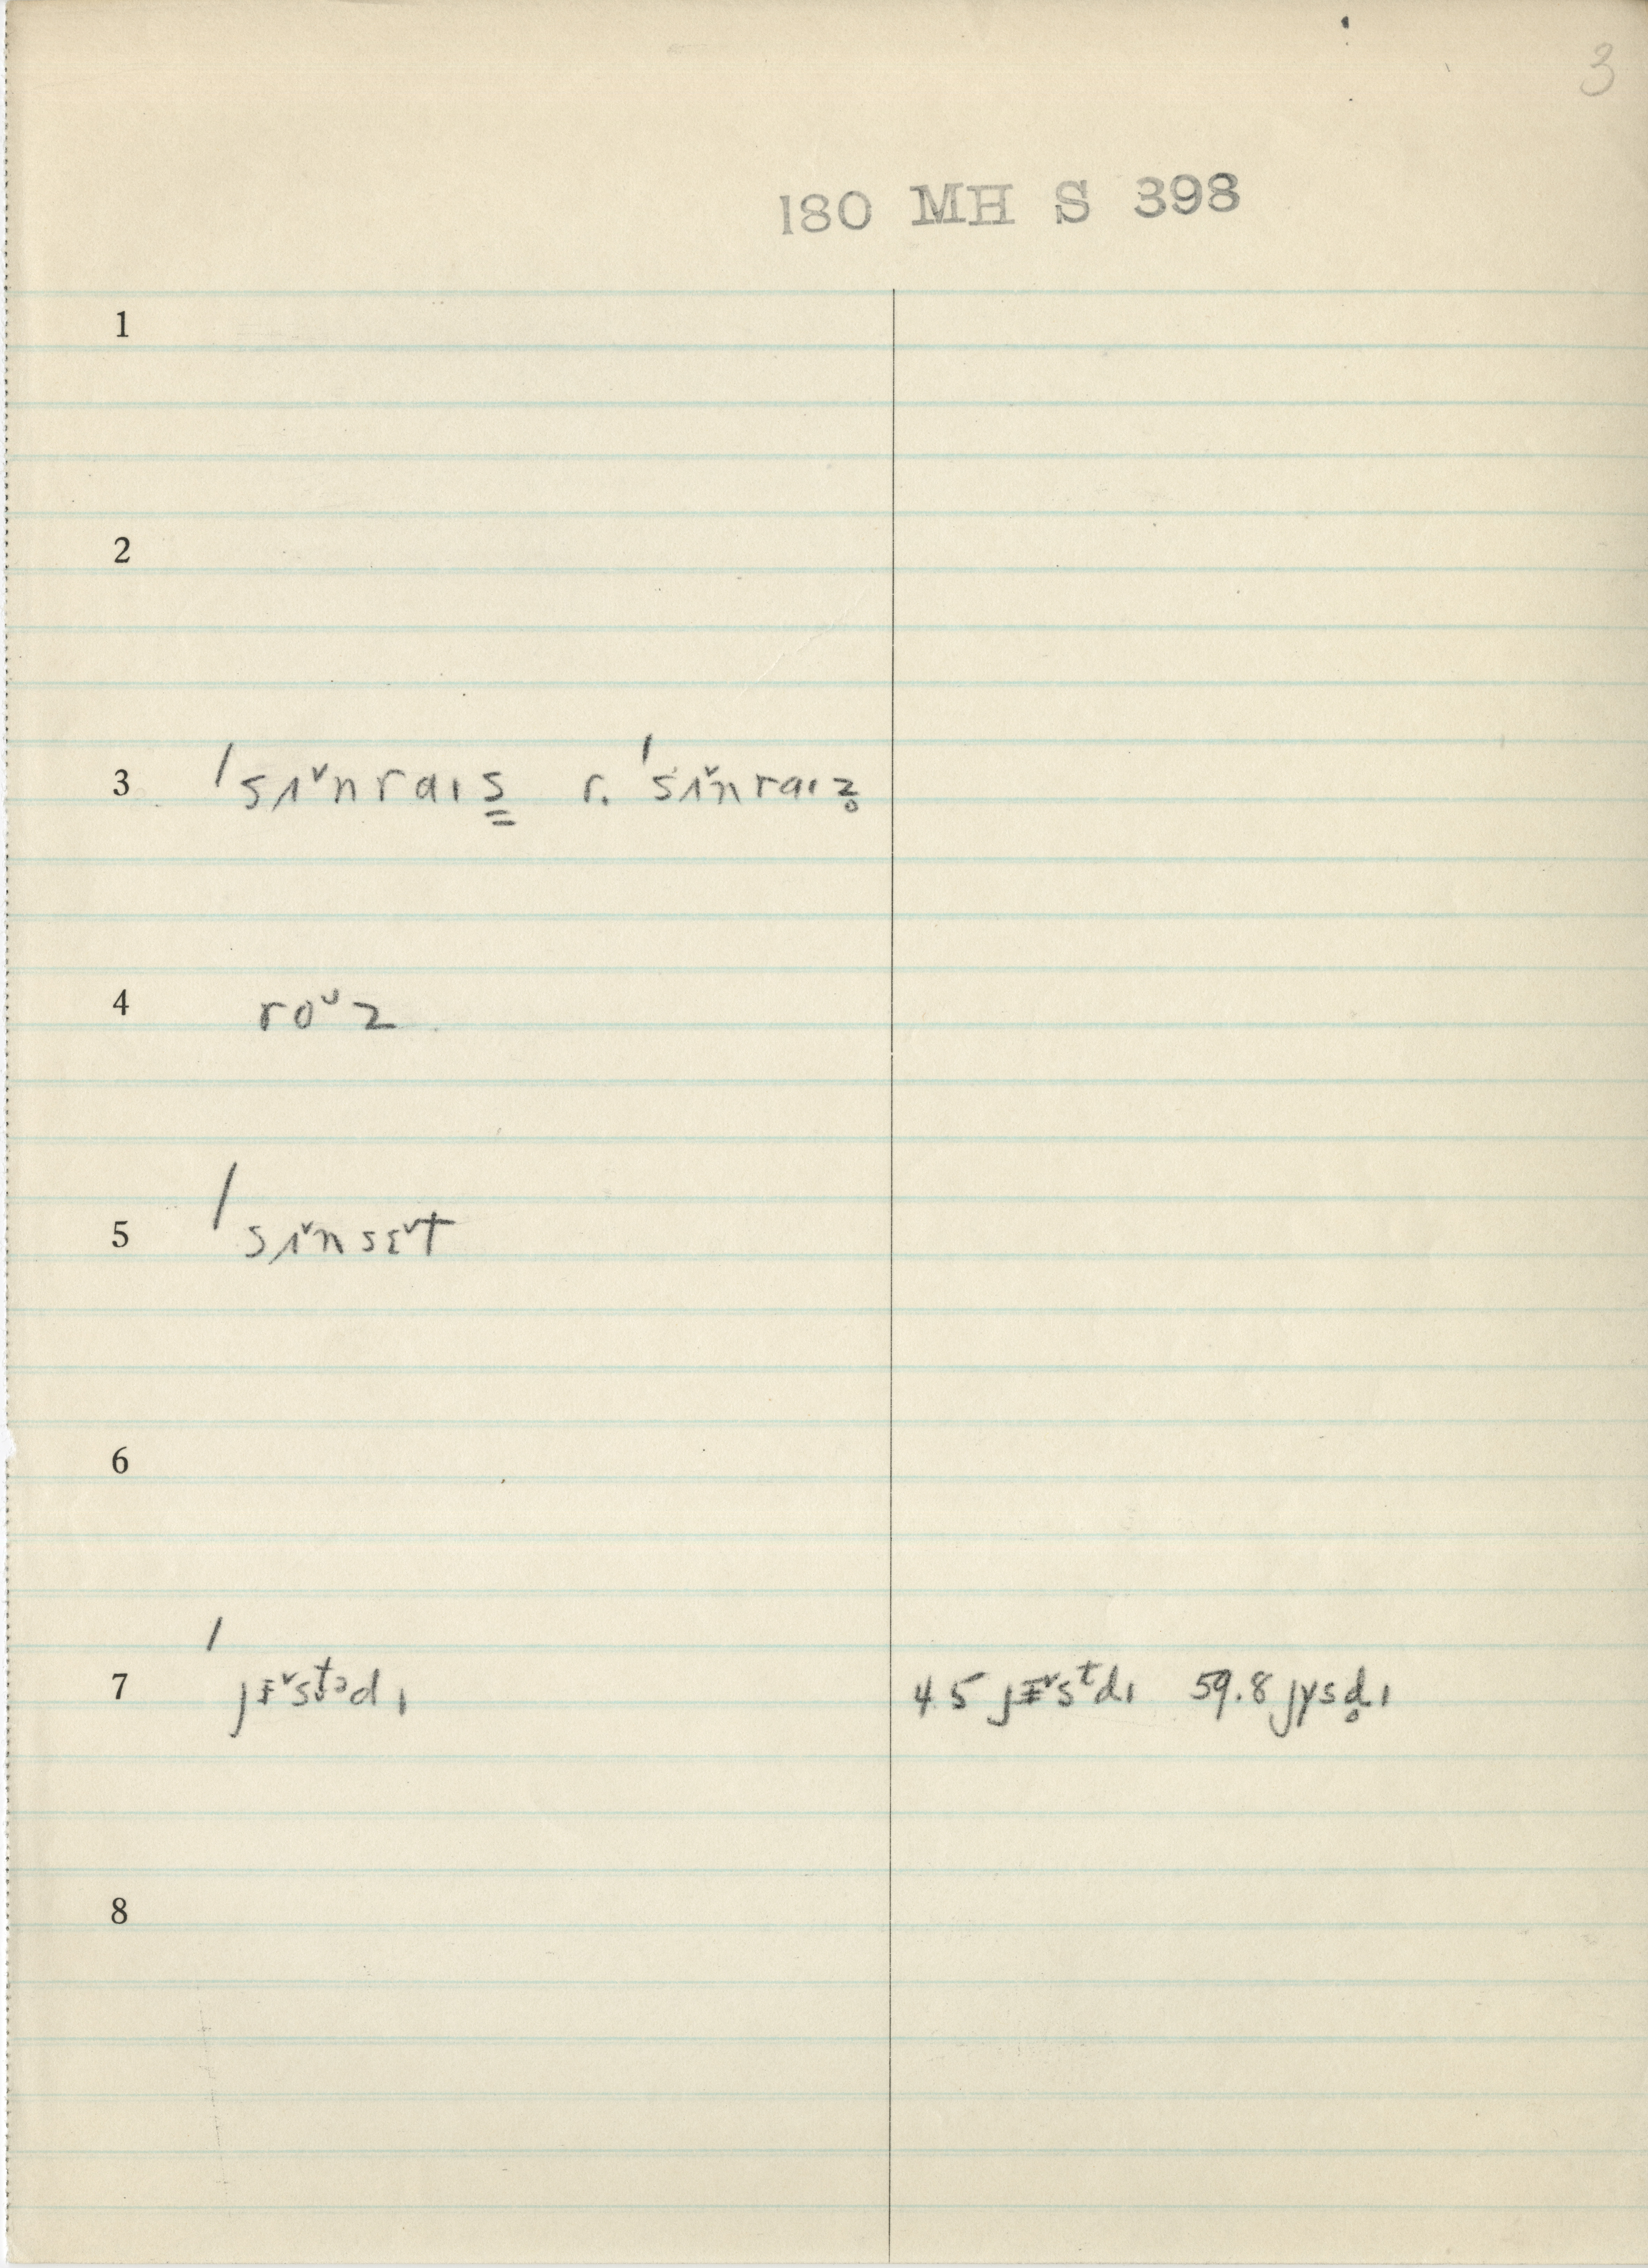 3
180 MH S 398
1
2
3 ˈsʌˇnraɪs̳ r. ˈsʌˇnraɪz̥
4 roˇz
5 ˈsʌˇnsɛˇt
6
7 ˈjᵻˇstədɪ 45 jᵻˇsᵗdɪ 59.8 jɣsd̥ɪ
8